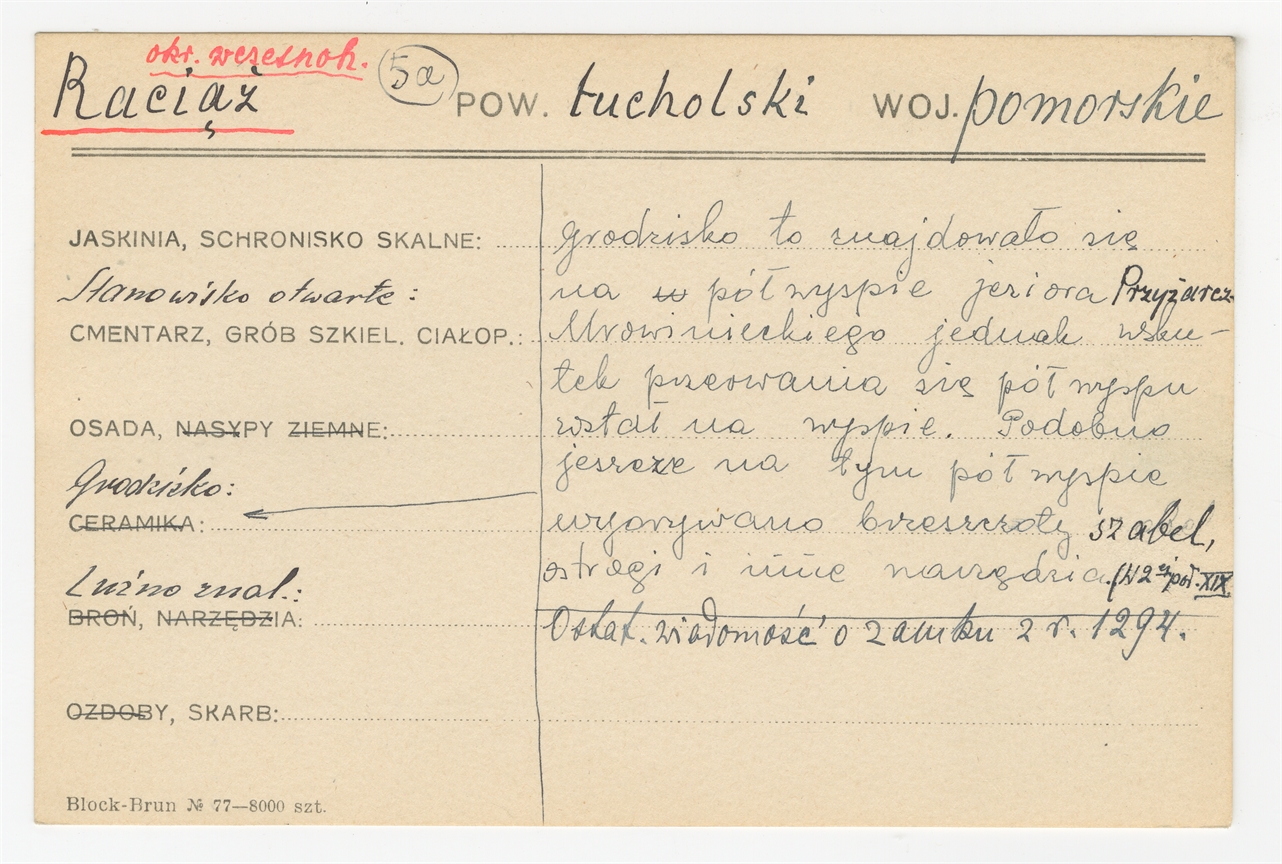 okr. wczesnoh.
Raciąż 5a POW. tucholski WOJ. pomorskie
JASKINIA, SCHRONISKO SKALNE:
Stanowisko otwarte:
CMENTARZ, GRÓB SZKIEL. CIAŁOP.:
OSADA, NASYPY ZIEMNE:
Grodzisko:
CERAMIKA:
Luźno znal.:
BROŃ, NARZĘDZIA:
OZDOBY, SKARB:
Block-Brun № 77—8000 szt.
grodzisko to znajdowało się
na w półwyspie jeziora Przyżarcz-
Mrowinieckiego jednak wsku-
tek przerwania się półwyspu
został na wyspie. Podobno
jeszcze na tym półwyspie
wyorywano brzeszczoty szabel,
ostrogi i inne narzędzia. (W 2ej poł. XIX
Ostat. wiadomość o zamku z r. 1294.